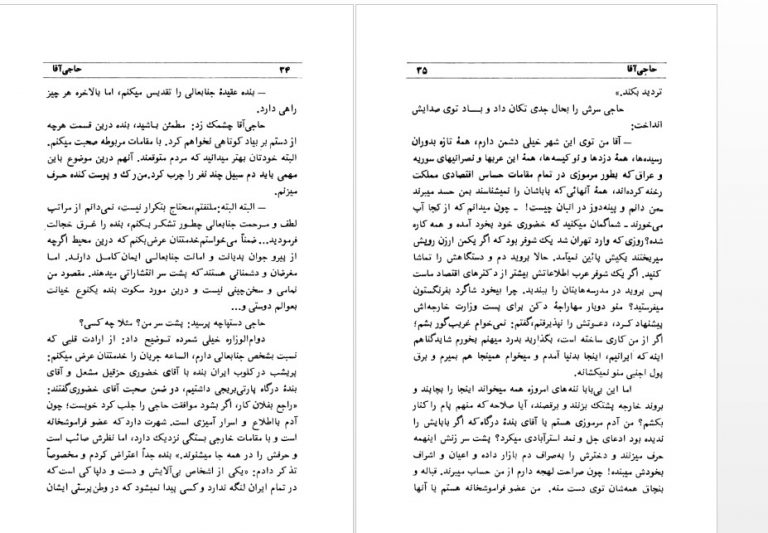 ۳۴ حاجی‌آقا
— بنده عقیدهٔ جنابعالی را تقدیس میکنم، اما بالاخره هر چیز
راهی دارد.
حاجی‌آقا چشمک زد: مطمئن باشید، بنده درین قسمت هرچه
از دستم بر بیاد کوتاهی نخواهم کرد. با مقامات مربوطه صحبت میکنم.
البته خودتان بهتر میدانید که مردم متوقعند. آنهم درین موضوع باین
مهمی باید دم سبیل چند نفر را چرب کرد. من رک و پوست کنده حرف
میزنم.
— البته البته: ملتفتم، محتاج بتکرار نیست، نمی‌دانم از مراتب
لطف و مرحمت جنابعالی چطور تشکر بکنم، بنده را غرق خجالت
فرمودید... ضمناً می‌خواستم خدمتتان عرض بکنم که درین محیط اگرچه
از پیرو جوان بدیانت و امانت جنابعالی ایمان کامل دارند. اما
مغرضان و دشمنانی هستند که پشت سر انتشاراتی میدهند. مقصود من
نمامی و سخن‌چینی نیست و درین مورد سکوت بنده یکنوع خیانت
بعوالم دوستی و...
حاجی دستپاچه پرسید: پشت سر من؟ مثلا چه کسی؟
دوام‌الوزاره خیلی شمرده توضیح داد: از ارادت قلبی که
نسبت بشخص جنابعالی دارم، الساعه جریان را خدمتتان عرض میکنم:
پریشب در کلوب ایران بنده با آقای خضوری حزقیل مشعل و آقای
بندهٔ درگاه پارتی‌بریجی داشتیم، در ضمن صحبت آقای خضوری‌گفتند:
«راجع بفلان کار، اگر بشود موافقت حاجی را جلب کرد خوبست؛ چون
آدم بااطلاع و اسرار آمیزی است. شهرت دارد که عضو فراموشخانه
است و با مقامات خارجی بستگی نزدیک دارد، اما نظرش صائب است
و حرفش را در همه جا میشنوند.» بنده جداً اعتراض کردم و مخصوصاً
تذکر دادم: «یکی از اشخاص بی‌آلایش و دست و دلپا کی است که
در تمام ایران لنگه ندارد و کسی پیدا نمیشود که در وطن‌پرستی ایشان
حاجی‌آقا ۳۵
تردید بکند.»
حاجی سرش را بحال جدی تکان داد و بـاد توی صدایش
انداخت:
— آقا من توی این شهر خیلی دشمن دارم، همهٔ تازه بدوران
رسیده‌ها، همهٔ دزدها و نو کیسه‌ها، همهٔ این عربها و نصرانیهای سوریه
و عراق که بطور مرموزی در تمام مقامات حساس اقتصادی مملکت
رخنه کرده‌اند، همهٔ آنهائی که باباشان را نمیشناسند بمن حسد میبرند
ـ من دانم و پینه‌دوز در انبان چیست! ـ چون میدانم که از کجا آب
می‌خورند ـ شماگمان میکنید که خضوری خود بخود آمده و همه کاره
شده؟ روزی که وارد تهران شد یک شوفر بود که اگر یکمن ارزن رویش
میریختند یکیش پائین نمیآمد. حالا بروید دم و دستگاهش را تماشا
کنید. اگر یک شوفر عرب اطلاعاتش بیشتر از دکترهای اقتصاد ماست
پس بروید در مدرسه‌هایتان را ببندید. چرا بیخود شاگرد بفرنگستون
میفرستید؟ منو دوبار مهاراجهٔ دکن برای پست وزارت خارجه‌اش
پیشنهاد کرد، دعوتش را نپذیرفتم، گفتم: نمی‌خوام غریب‌گور بشم؛
اگر از من کاری ساخته است، بگذارید بدرد میهنم بخورم شاید گناهم
اینه که ایرانیم، اینجا بدنیا آمدم و میخوام همینجا هم بمیرم و برق
پول اجنبی منو نمیکشانه.
اما این بی‌بابا ننه‌های امروزه همه میخواند اینجا را بچاپند و
بروند خارجه پشتک بزنند و برقصند، آیا صلاحه که منهم پام را کنار
بکشم؟ من آدم مرموزی هستم یا آقای بندهٔ درگاه که اگر بابایش را
ندیده بود ادعای جل و نمد استرآبادی میکرد؟ پشت سر زنش اینهمه
حرف میزنند و دخترش را بصراف دم بازار داده و اعیان و اشراف
بخودش میبنده! چون صراحت لهجه دارم از من حساب میبرند. قباله و
بنجاق همه‌شان توی دست منه. من عضو فراموشخانه هستم یا آنها